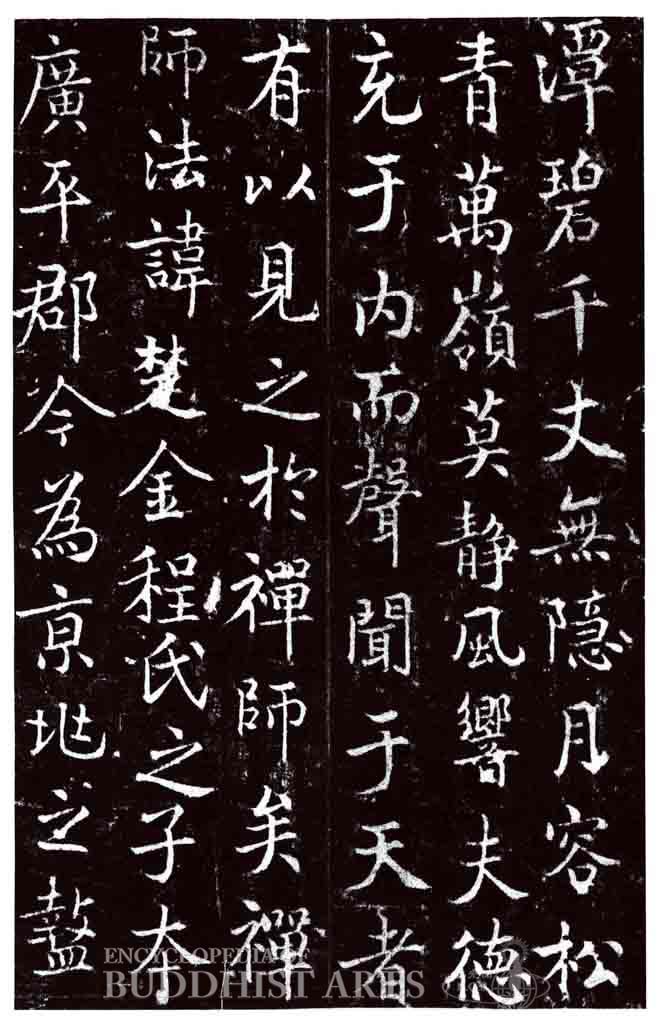 潭碧千丈無隱月容松
青萬嶺莫静風響夫德
充于内而聲聞于天者
有以見之於禪師矣禪
師法諱楚金程氏之子本
廣平郡今為京地之盩
ENCYCLOPEDIA OF
BUDDHIST ARTS